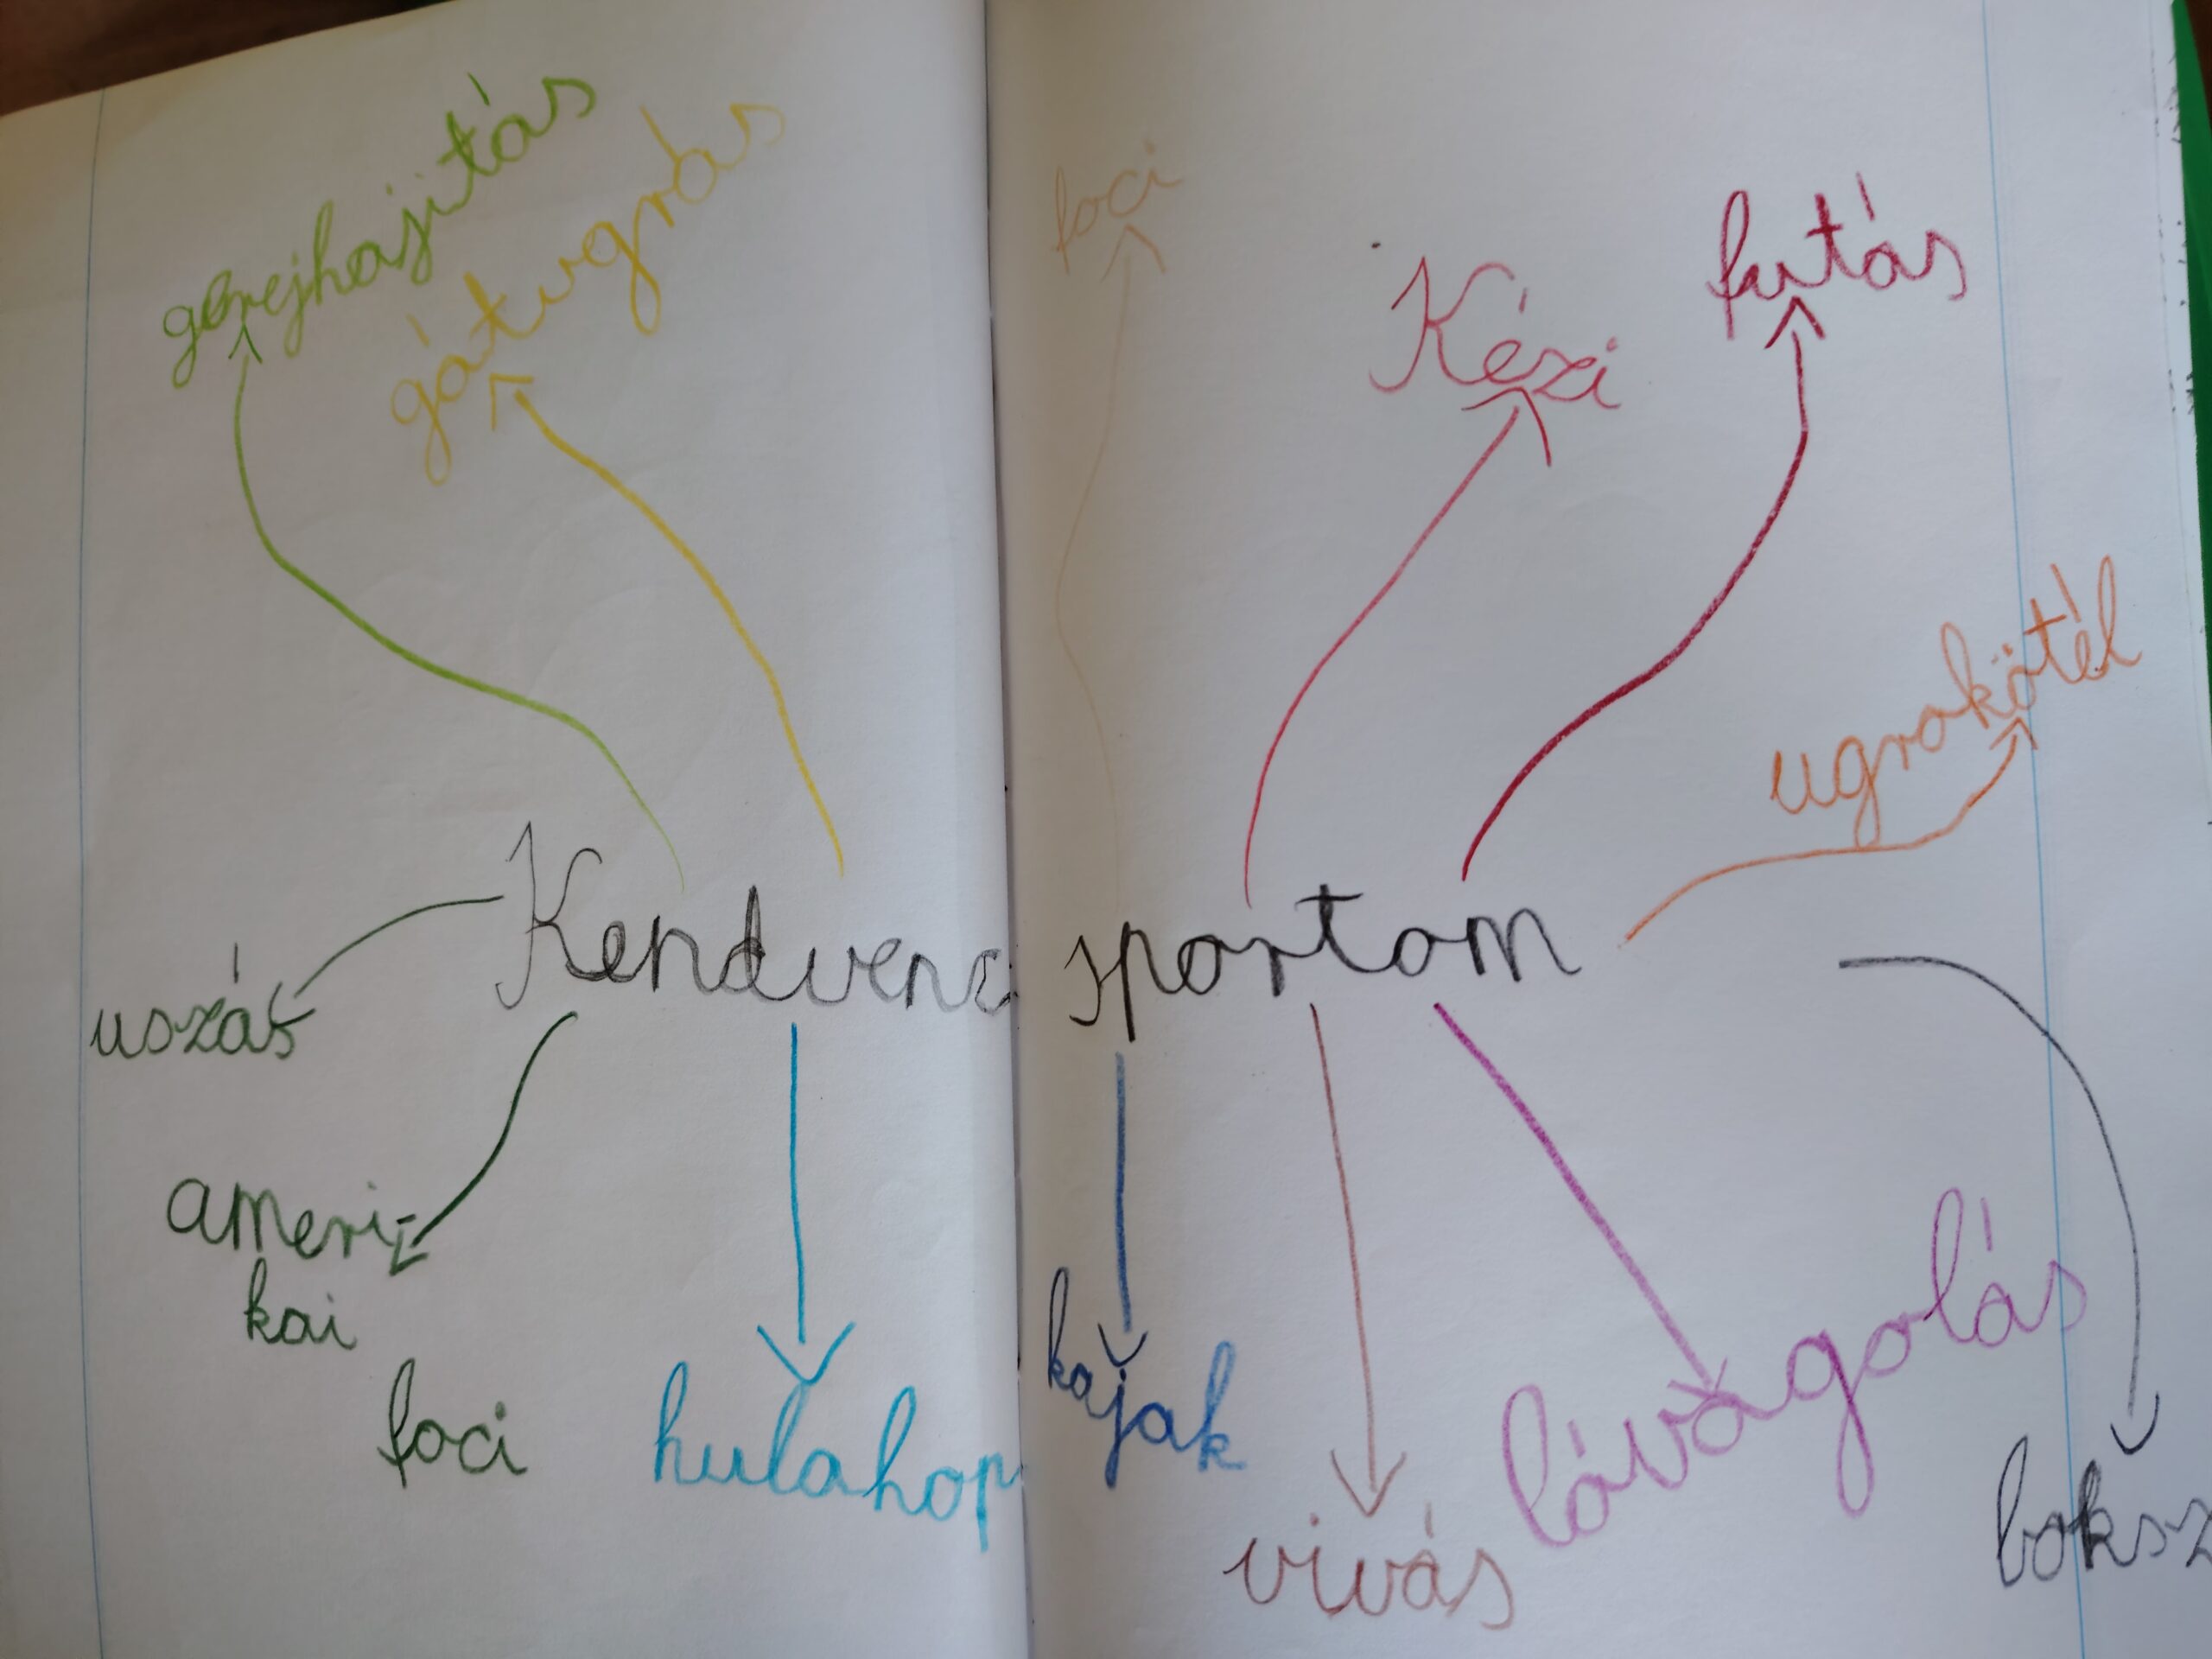 gerejhajitás
gátugrás
foci
Kézi
futás
ugrokötél
Kendvenc sportom
uszás
ameri-
kai
foci
hulahop
kajak
vivás
lóvagolás
boksz